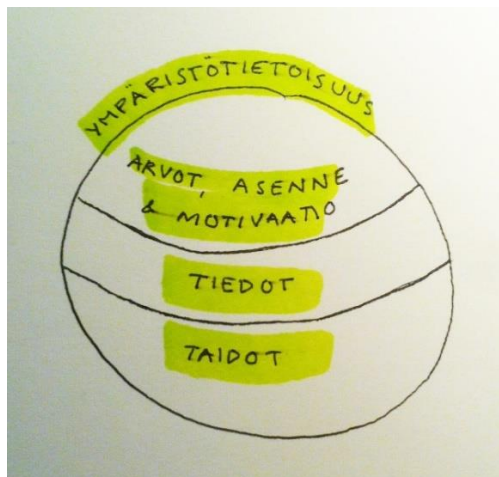 YMPÄRISTÖTIETOISUUS
ARVOT, ASENNE
& MOTIVAATIO
TIEDOT
TAIDOT